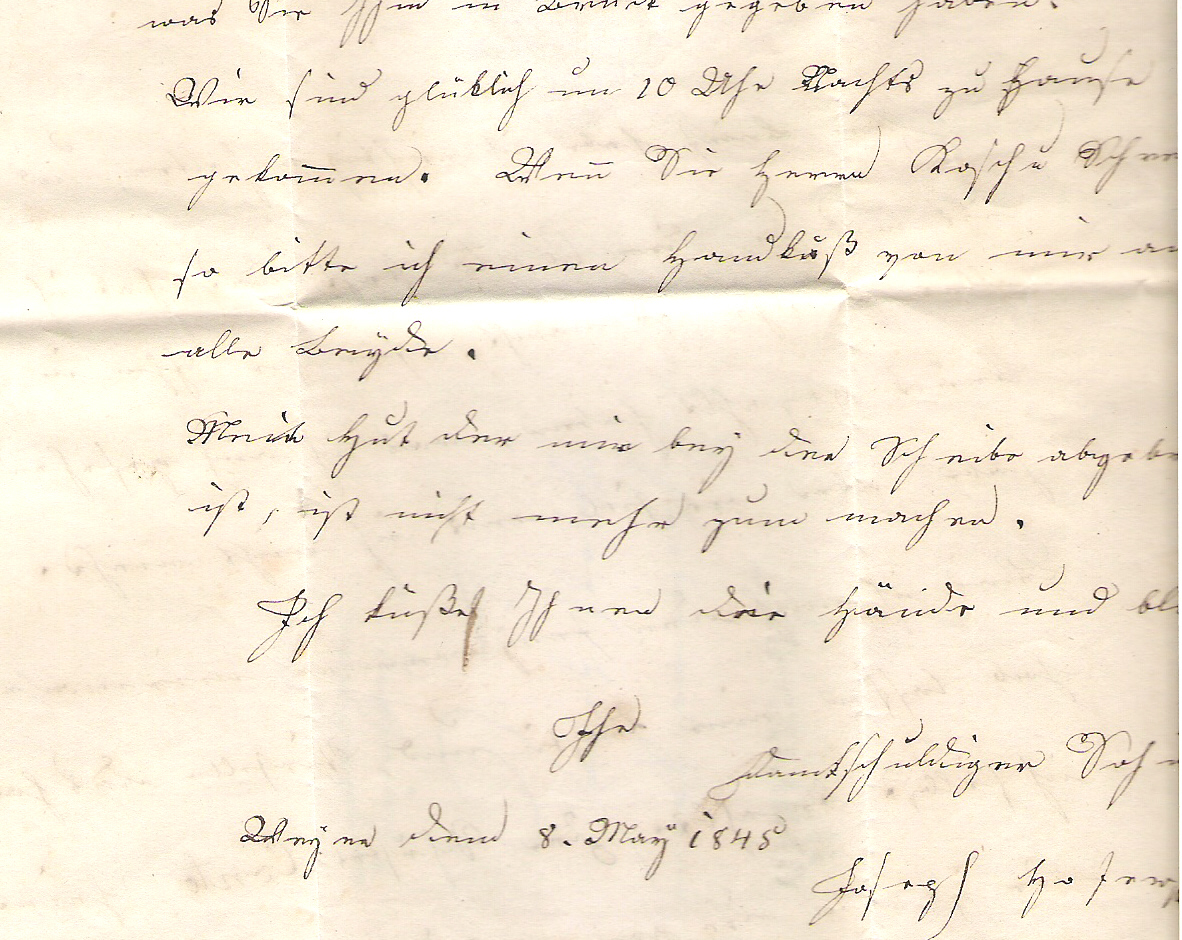 was Sie Ihm in Bruck gegeben haben.
Wir sind glüklich um 10 Uhr Nachts zu Hause
gekom̅en. Wen̅ Sie Herrn Koschu Schre
so bitte ich einen Handkuß von mir an
alle Beyde.
Mein Hut der mir bey der Scheibe abgebr
ist, ist nicht mehr zum machen.
Ich küße Ihnen die Hände und bl
Ihr
dankschuldiger Soh
Weyer den 8. May 1845
Joseph Hofer